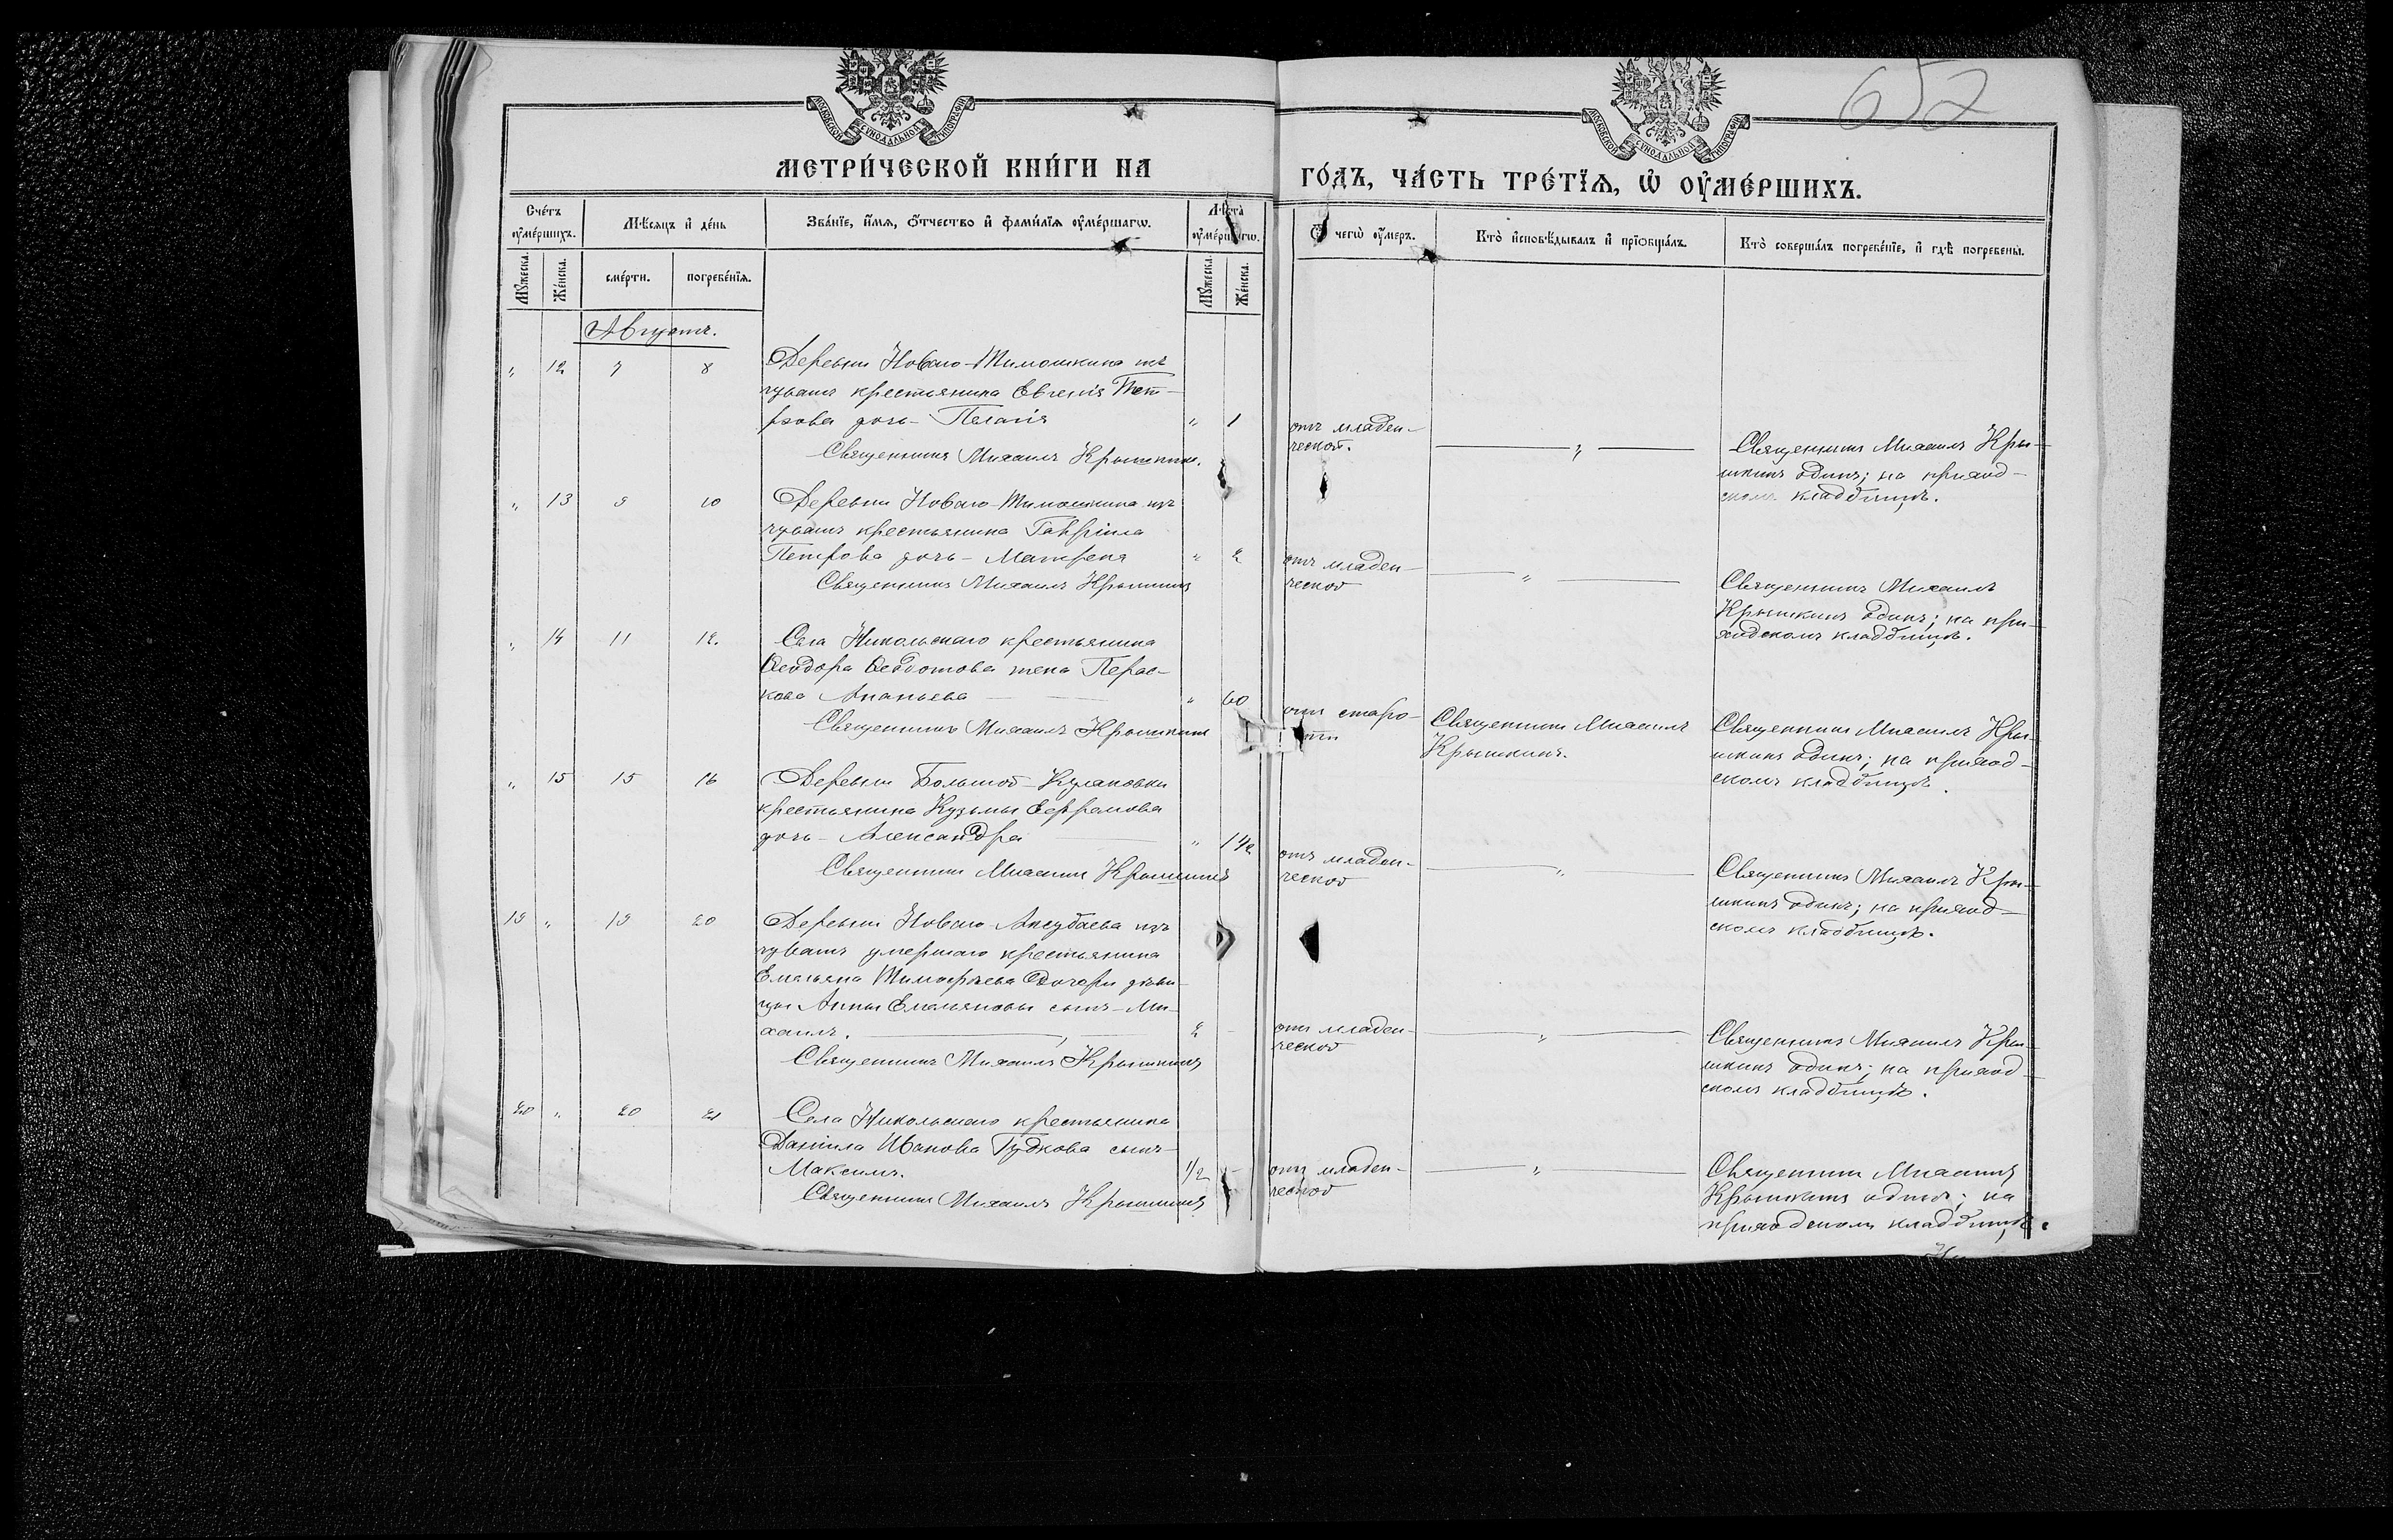 652
МОСКОВСКОЙ СѴНОДАЛЬНОЙ ТИПОГРАФІИ
МОСКОВСКОЙ СѴНОДАЛЬНОЙ ТИПОГРАФІИ
МЕТРИ́ЧЕСКОЙ КНИ́ГИ НА
ГО́ДЪ, ЧА́СТЬ ТРЕ́ТІѦ, Ѡ҆ ОУ҆МЕ́РШИХЪ.
Сче́тъ оу҆ме́ршихъ.
Мѣ́сяцъ и҆ де́нь
Зва́нїе, и҆́мѧ, ѻ҆́тчество и҆ фами́лїѧ оу҆ме́ршагѡ.
Лѣта̀ оу҆ме́ршагѡ.
Ѿ чегѡ̀ оу҆́меръ.
Кто̀ и҆сповѣ́дывалъ и҆ прїѡбща́лъ.
Кто̀ соверша́лъ погребе́нїе, и҆ гдѣ̀ погребены̀.
Мꙋ́жеска.
Же́нска.
сме́рти.
погребе́нїѧ.
Мꙋ́жеска.
Же́нска.
Августъ.
" 12 7 8
Деревни Новаго-Тимошкина изъ
чувашъ крестьянина Евгенія Пет-
рова дочь - Пелагія " 1
Священникъ Михаилъ Крышкинъ.
отъ младен-
ческой.
"
Священникъ Михаилъ Кры-
шкинъ одинъ; на приход-
скомъ кладбищѣ.
" 13 9 10
Деревни Новаго-Тимошкина изъ
чувашъ крестьянина Гавріила
Петрова дочь - Матрена " 2
Священникъ Михаилъ Крышкинъ
отъ младен-
ческой
"
Священникъ Михаилъ
Крышкинъ одинъ; на при-
ходскомъ кладбищѣ.
" 14 11 12.
Села Никольскаго крестьянина
Ѳеодора Ѳедотова жена Парас-
кова Ананьева " 60
Священникъ Михаилъ Крышкинъ
отъ старо-
сти
Священникъ Михаилъ
Крышкинъ.
Священникъ Михаилъ Кры-
шкинъ одинъ; на приход-
скомъ кладбищѣ.
" 15 15 16
Деревни Большой-
крестьянина Кузьмы Ефремова
дочь - Александра " 1 1/2
Священникъ Михаилъ Крышкинъ
отъ младен-
ческой
"
Священникъ Михаилъ Кры-
шкинъ одинъ; на приход-
скомъ кладбищѣ.
19 " 19 20
Деревни Новаго-Аксубаева изъ
чувашъ умершаго крестьянина
Емельяна Тимофѣева дочери дѣви-
цы Анны Емельяновы сынъ - Ми-
хаилъ. 2 -
Священникъ Михаилъ Крышкинъ
отъ младен-
ческой
"
Священникъ Михаилъ Кры-
шкинъ одинъ; на приход-
скомъ кладбищѣ.
20 " 20 21
Села Никольскаго крестьянина
Даніила Иванова Гудкова сынъ
Максимъ. 1/2 -
Священникъ Михаилъ Крышкинъ
отъ младен-
ческой
"
Священникъ Михаилъ
Крышкинъ одинъ; на
приходскомъ кладбищѣ.